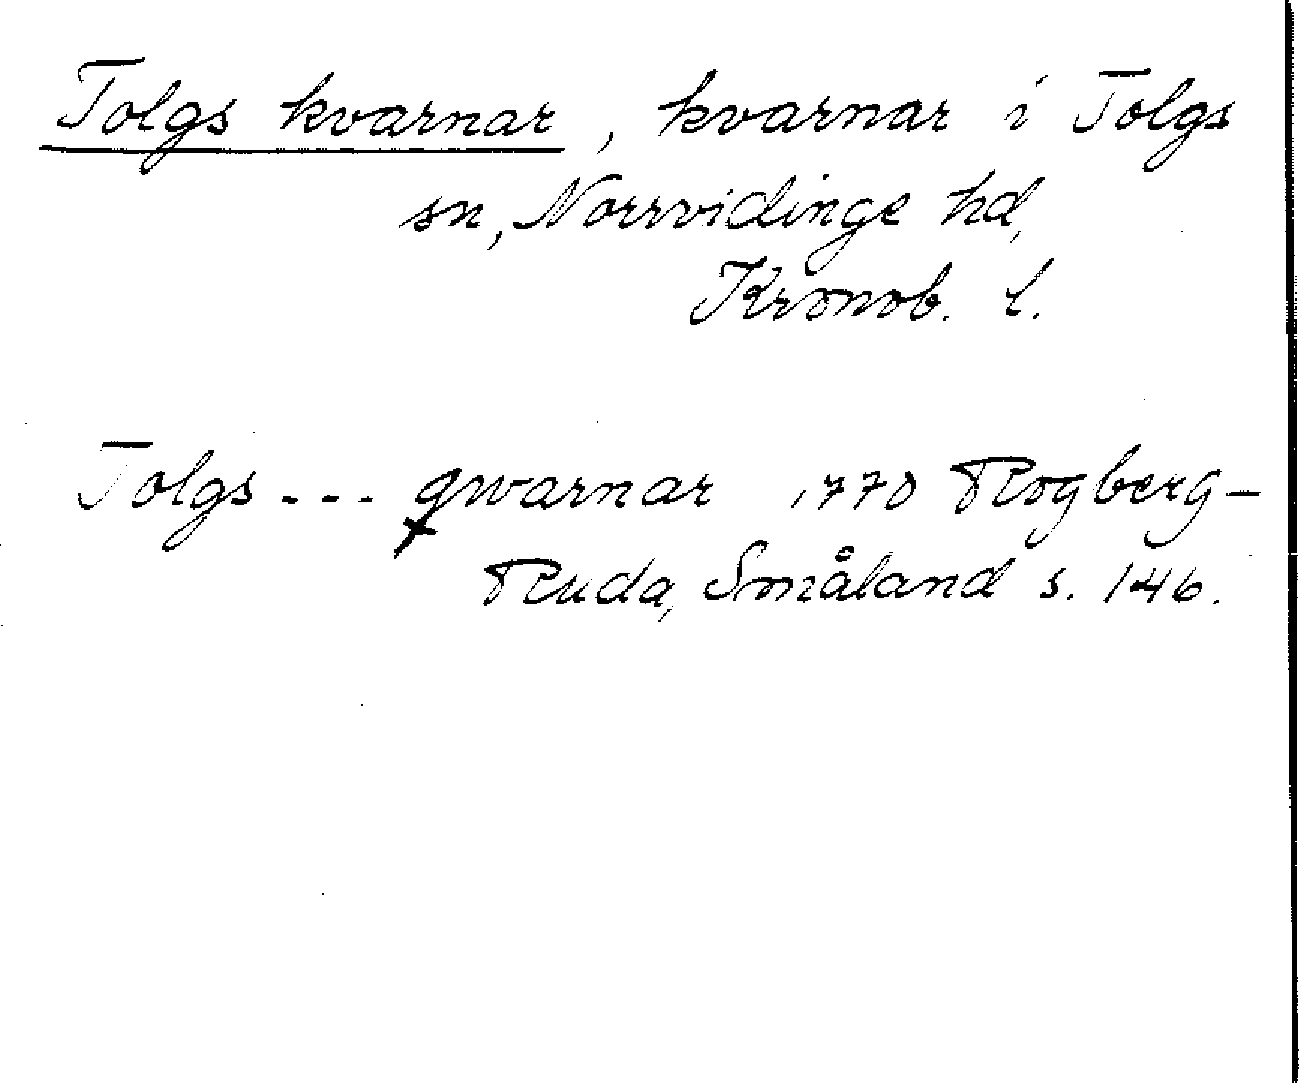 Tolgs kvarnar, kvarnar i Tolgs
sn, Norrvidinge hd,
Kronob. l.
Tolgs - - - qwarnar 1770 Rogberg-
Ruda, Småland s. 146.